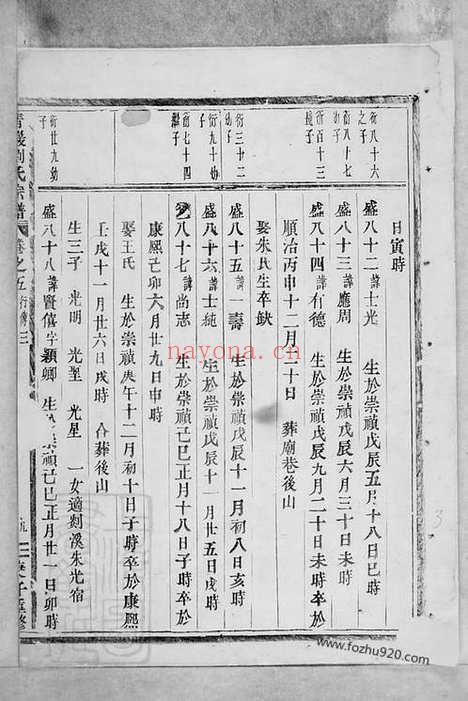 衍八十六
之子
衍八十七
幼子
衍百十三
長子
衍三十二
幼子
衍九十幼
子
衍七十四
繼子
衍廿九幼
子
日寅時
盛八十二諱士光 生於崇禎戊辰五月十八日巳時
盛八十三諱應周 生於崇禎戊辰六月三十日未時
盛八十四諱有德 生於崇禎戊辰九月二十日未時卒於
順治丙申十二月三十日 葬廟巷後山
娶朱氏生卒缺
盛八十五諱一壽 生於崇禎戊辰十一月初八亥時
盛八十六諱士純 生於崇禎戊辰十一月廿五日戌時
盛八十七諱尚志 生於崇禎己巳正月十八日子時卒於
康熙己卯六月廿九日申時
娶王氏 生於崇禎庚午十二月初十日子時卒於康熙
壬戌十一月廿六日戌時 合葬後山
生三子 光明 光星 一女適剡溪朱光宿
盛八十八諱賢僖字穎卿 生 禎己巳正月廿一日卯時
劉氏宗譜 卷之五 行傳 三
nayona.cn
www.fozhu920.com
3